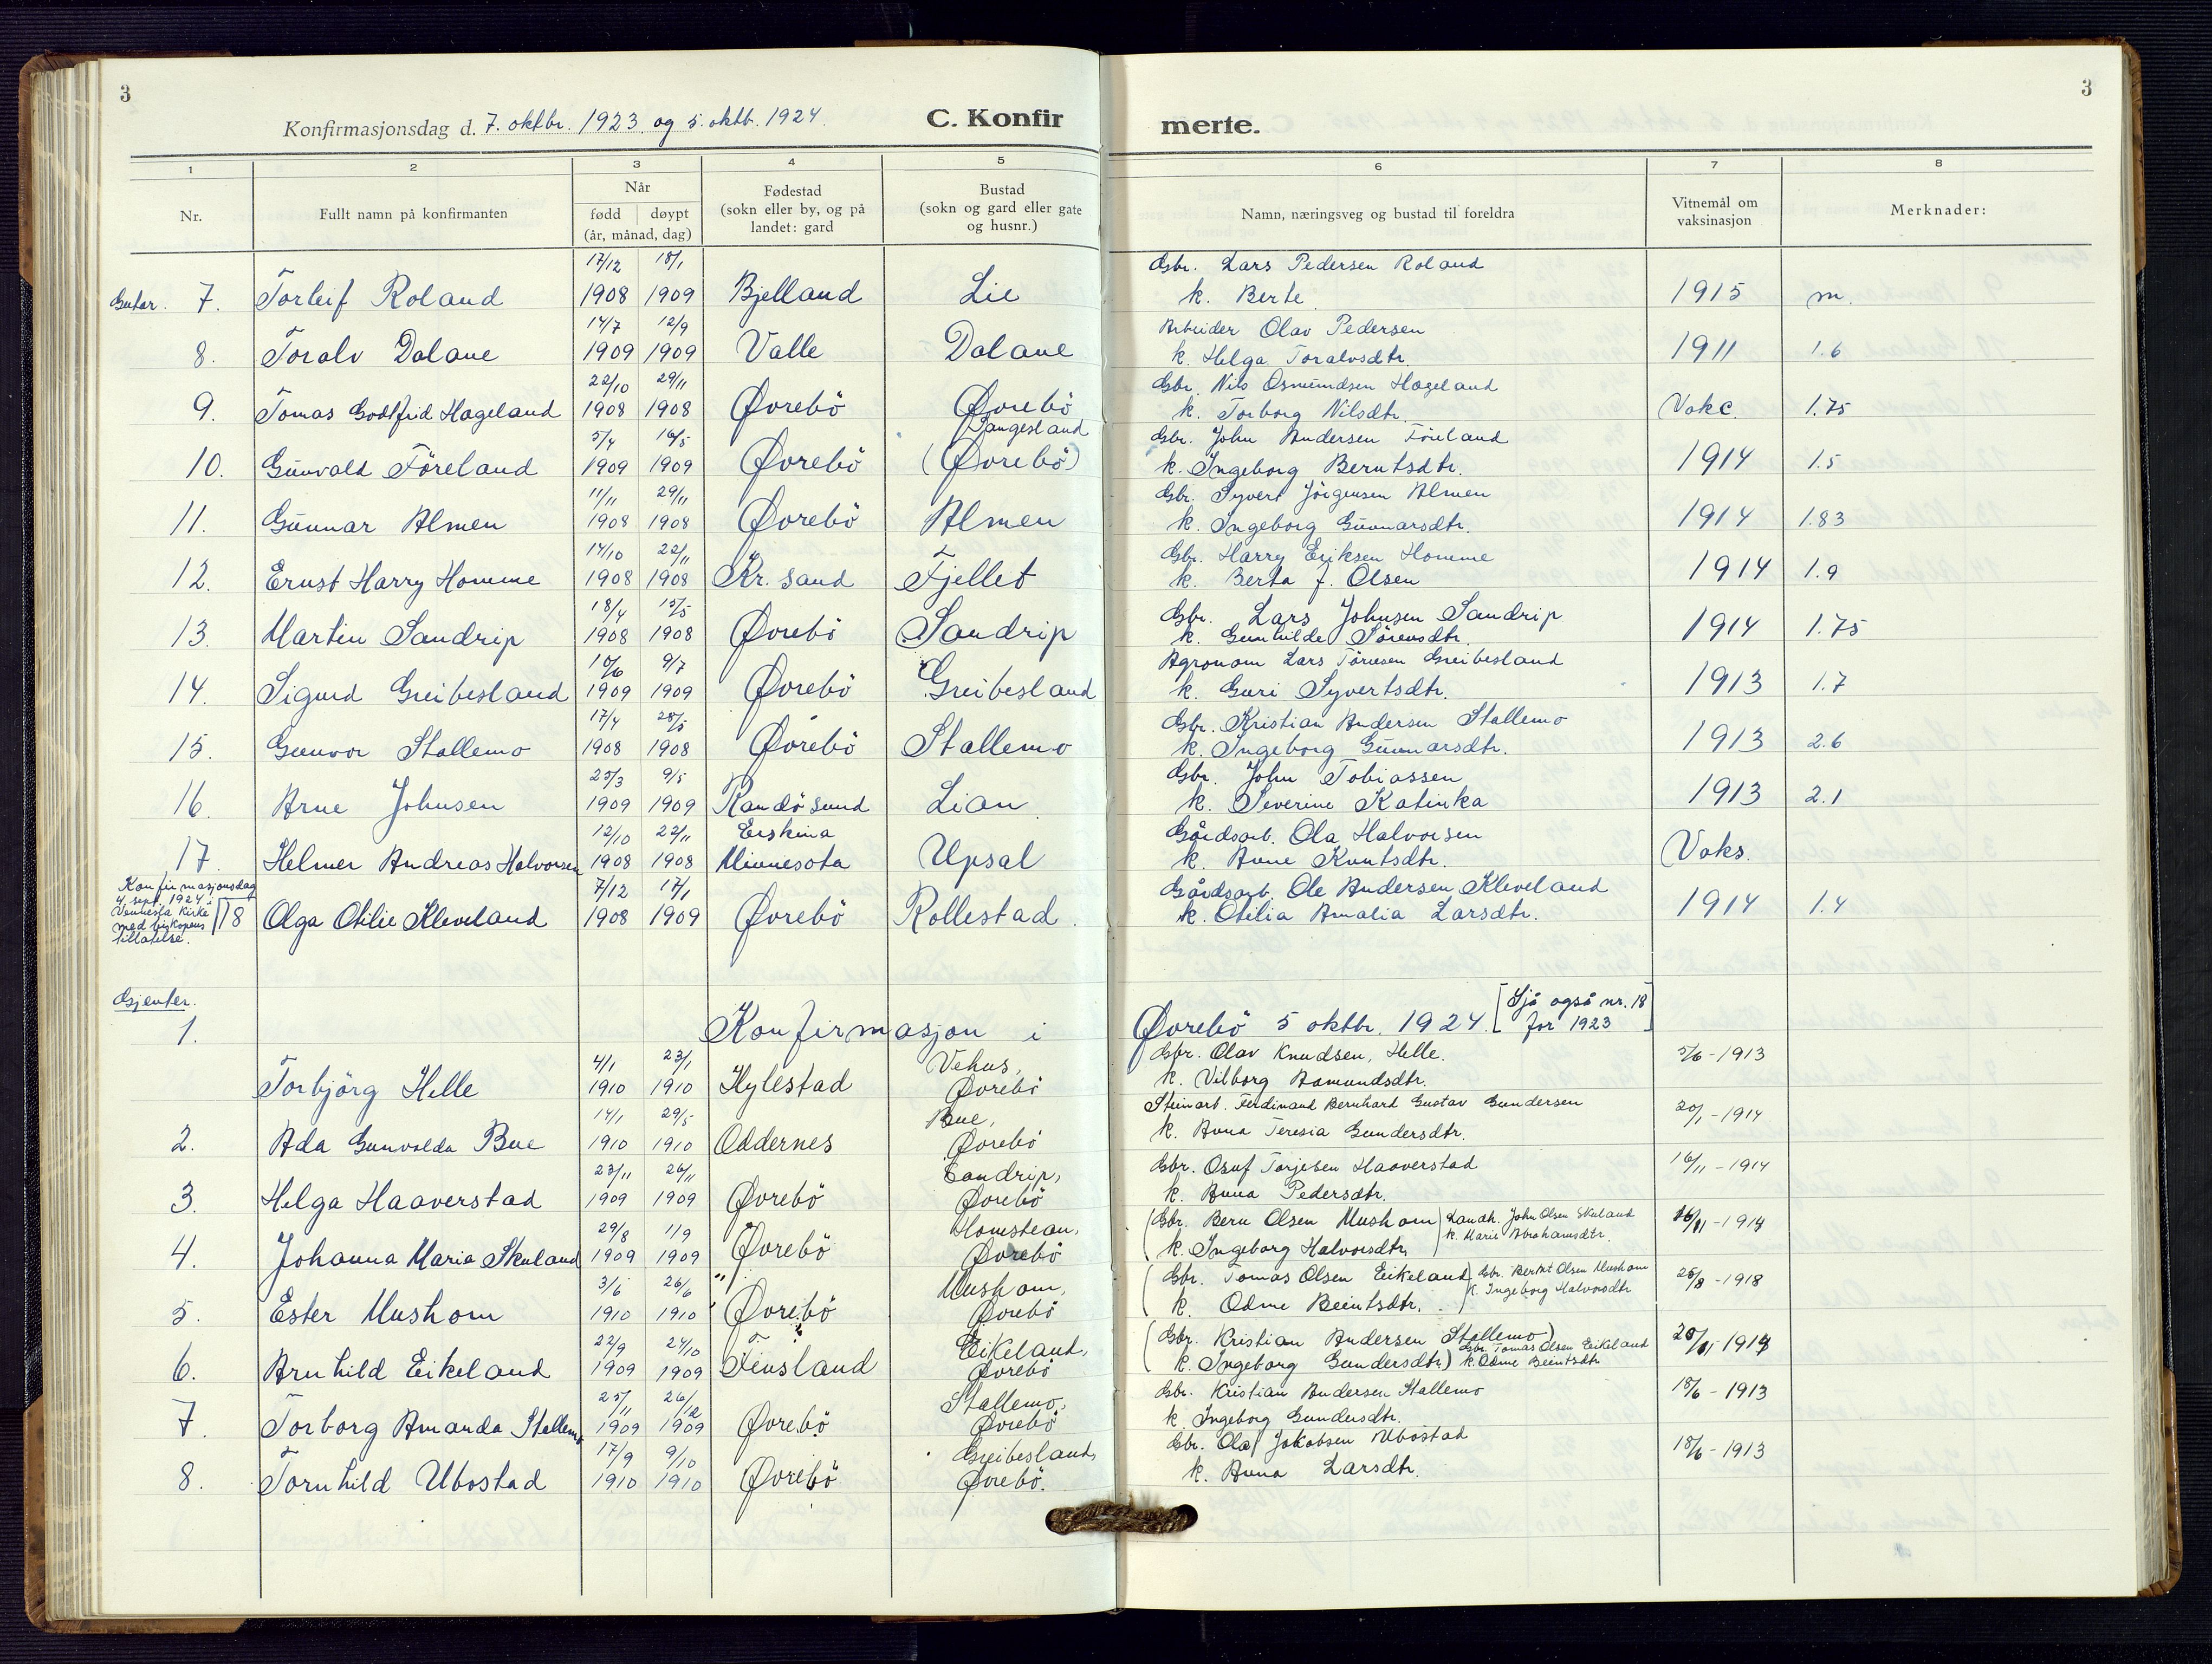 3
Konfirmasjonsdag d. 7. oktbr. 1923 og 5. oktb. 1924.
C. Konfir
merte.
3
1 2 3 4 5 6 7 8
Nr.
Fullt namn på konfirmanten
Når
født | døypt
(år, månad, dag)
Fødestad
(sokn eller by, og på
landet: gard
Bustad
(sokn og gard eller gate
og husnr.)
Namn, næringsveg og bustad til foreldra
Vitnemål om
vaksinasjon
Merknader:
17/12 18/1 Gbr. Lars Pedersen Roland
Gutar. 7. Torleif Roland 1908 1909 Bjelland Lie k. Berte 1915 m.
14/7 12/9 Arbeider Olav Pedersen
8. Toralv Dalane 1909 1909 Valle Dalane k. Helga Toralvsdtr. 1911 1.6
22/10 29/11 Gbr. Nils Osmundsen Hageland
9. Tomas Godtfrid Hageland 1908 1908 Øvrebö Øvrebö k. Torborg Nilsdtr. Vakc. 1.75
5/4 16/5 Langesland Gbr. John Andersen Föreland
10. Gunvald Föreland 1909 1909 Øvrebö (Øvrebö) k. Ingeborg Berntsdtr. 1914 1.5
11/11 29/11 Gbr. Syvert Jörgensen Almen
11. Gunnar Almen 1908 1908 Øvrebö Almen k. Ingeborg Gunnarsdtr. 1914 1.83
14/10 22/11 Gbr. Harry Eriksen Homme
12. Ernst Harry Homme 1908 1908 Kr.sand Fjellet k. Berta f. Olsen 1914 1.9
18/4 15/5 Gbr. Lars Johnsen Sandrip
13. Martin Sandrip 1908 1908 Øvrebö Sandrip k. Gunhilde Sörensdtr. 1914 1.75
10/6 9/7 Agronom Lars Törresen Greibesland
14. Sigurd Greibesland 1909 1909 Øvrebö Greibesland k. Guri Syvertsdtr. 1913 1.7
17/4 28/5 Gbr. Kristian Andersen Stallemo
15. Gunvor Stallemo 1908 1908 Øvrebö Stallemo k. Ingeborg Gunnarsdtr. 1913 2.6
25/3 9/5 Gbr. John Tobiassen
16. Arne Johnsen 1909 1909 Randösund Lian k. Severine Katinka 1913 2.1
12/10 22/11 Erskina Gårdsarb. Ola Halvorsen
17. Helmer Andreas Halvorsen 1908 1908 Minnesota Upsal k. Anne Knutsdtr. Vaks.
Konfirmasjonsdag
4. sept. 1924 i
Vennesla Kirke
med biskopens
tillatelse.
7/12 17/1 Gårdsarb. Ole Andersen Kleveland
18 Olga Otilie Kleveland 1908 1909 Øvrebö Rollestad. k. Otilia Amalia Larsdtr. 1914 1.4
Gjenter.
1. Konfirmasjon i Øvrebö 5 oktbr. 1924. [Sjå også nr. 18
for 1923]
4/1 23/1 Vehus, Gbr. Olav Knudsen, Helle. 5/6-1913
Torbjörg Helle 1910 1910 Hylestad Øvrebö k. Vilborg Aamundsdtr.
14/1 29/5 Bue, Steinarb. Ferdinand Bernhard Gustav Gundersen 20/1-1914
2. Ada Gunvalda Bue 1910 1910 Oddernes Øvrebö k. Anna Teresia Gundersdtr.
23/11 26/11 Sandrip, Gbr. Osuf Torjesen Haaverstad 16/11-1914
3. Helga Haaverstad 1909 1909 Øvrebö Øvrebö k. Anna Pedersdtr.
29/8 11/9 Homstean, (Gbr. Bern Olsen Mushom) Landh. John Olsen Skuland 16/11-1914
4. Johanna Maria Skuland 1909 1909 Øvrebö Øvrebö (k. Ingeborg Halvorsdtr.) k. Marie Abrahamsdtr.
3/6 26/6 Mushom, (Gbr. Tomas Olsen Eikeland) Gbr. Bernt Olsen Mushom 25/8-1918
5. Ester Mushom 1910 1910 Øvrebö Øvrebö (k. Odine Beintsdtr.) k. Ingeborg Halvorsdtr
22/9 24/10 Eikeland, (Gbr. Kristian Andersen Stallemo) Gbr. Tomas Olsen Eikeland
6. Arnhild Eikeland 1909 1909 Finsland Øvrebö (k. Ingeborg Gundersdtr) k. Odine Beintsdtr
25/11 26/12 Stallemo, Gbr. Kristian Andersen Stallemo 18/6-1913
7. Torborg Amanda Stallemo 1909 1909 Øvrebö Øvrebö k. Ingeborg Gundersdtr.
17/9 9/10 Greibesland, Gbr. Olaf Jakobsen Ubostad 18/6-1913
8. Tornhild Ubostad 1910 1910 Øvrebö Øvrebö. k. Anna Larsdtr.